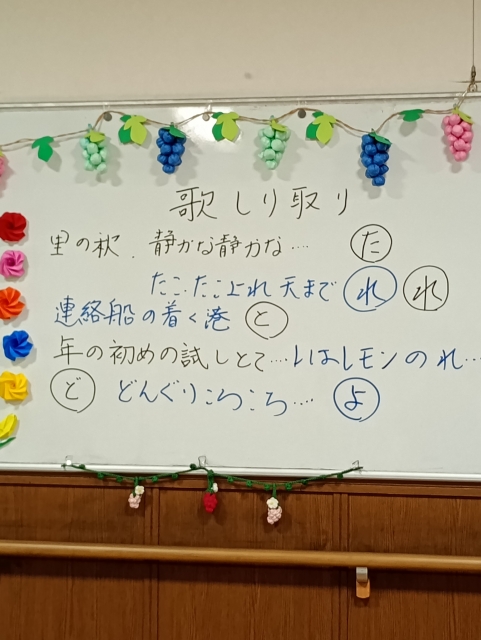 歌しり取り
里の秋. 静かな静かな… た
たこたこ上れ 天まで れ れ
連絡船の着く港 と
年の初めの試しとて…いはレモンのれ…
ど どんぐりころころ… よ